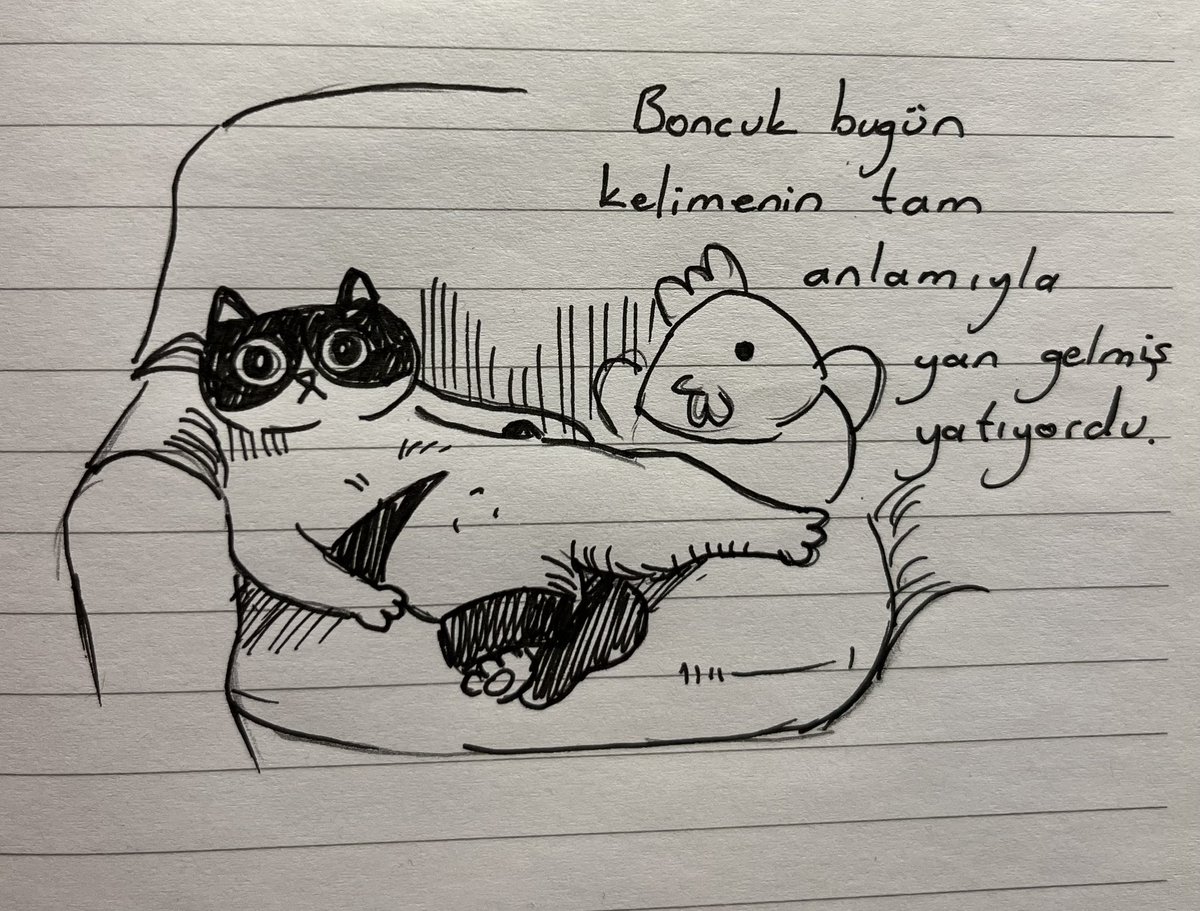 Boncuk bugün
kelimenin tam
anlamıyla
yan gelmiş
yatıyordu.